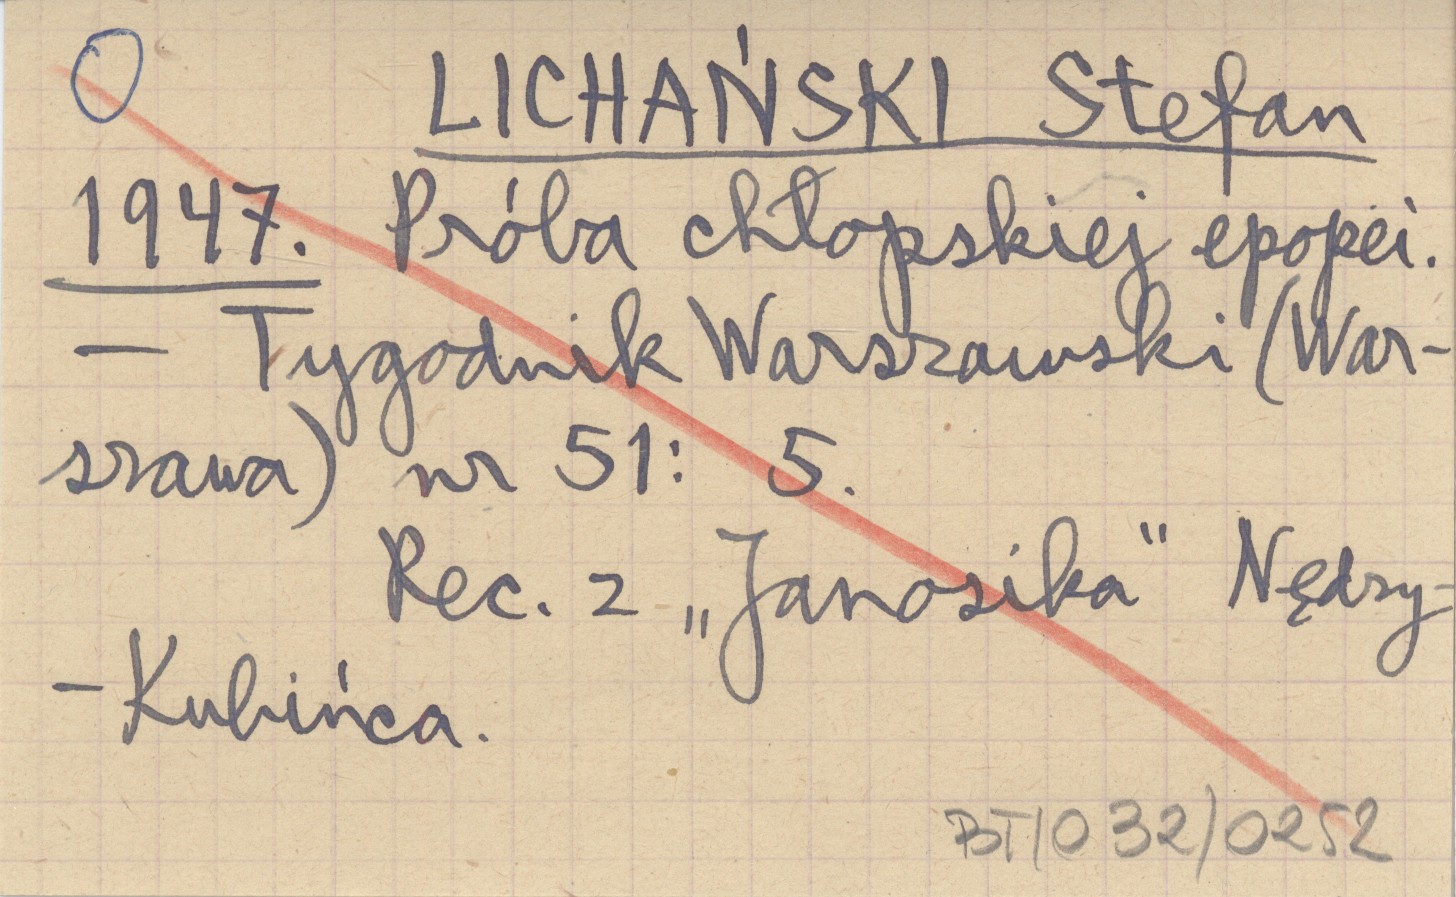 LICHAŃSKI Stefan
1947. Próba chłopskiej epopei.
— Tygodnik Warszawski (War-
szawa) nr 51: 5.
Rec. z „Janosika" Nędzy-
-Kubińca.
BT/032/0252